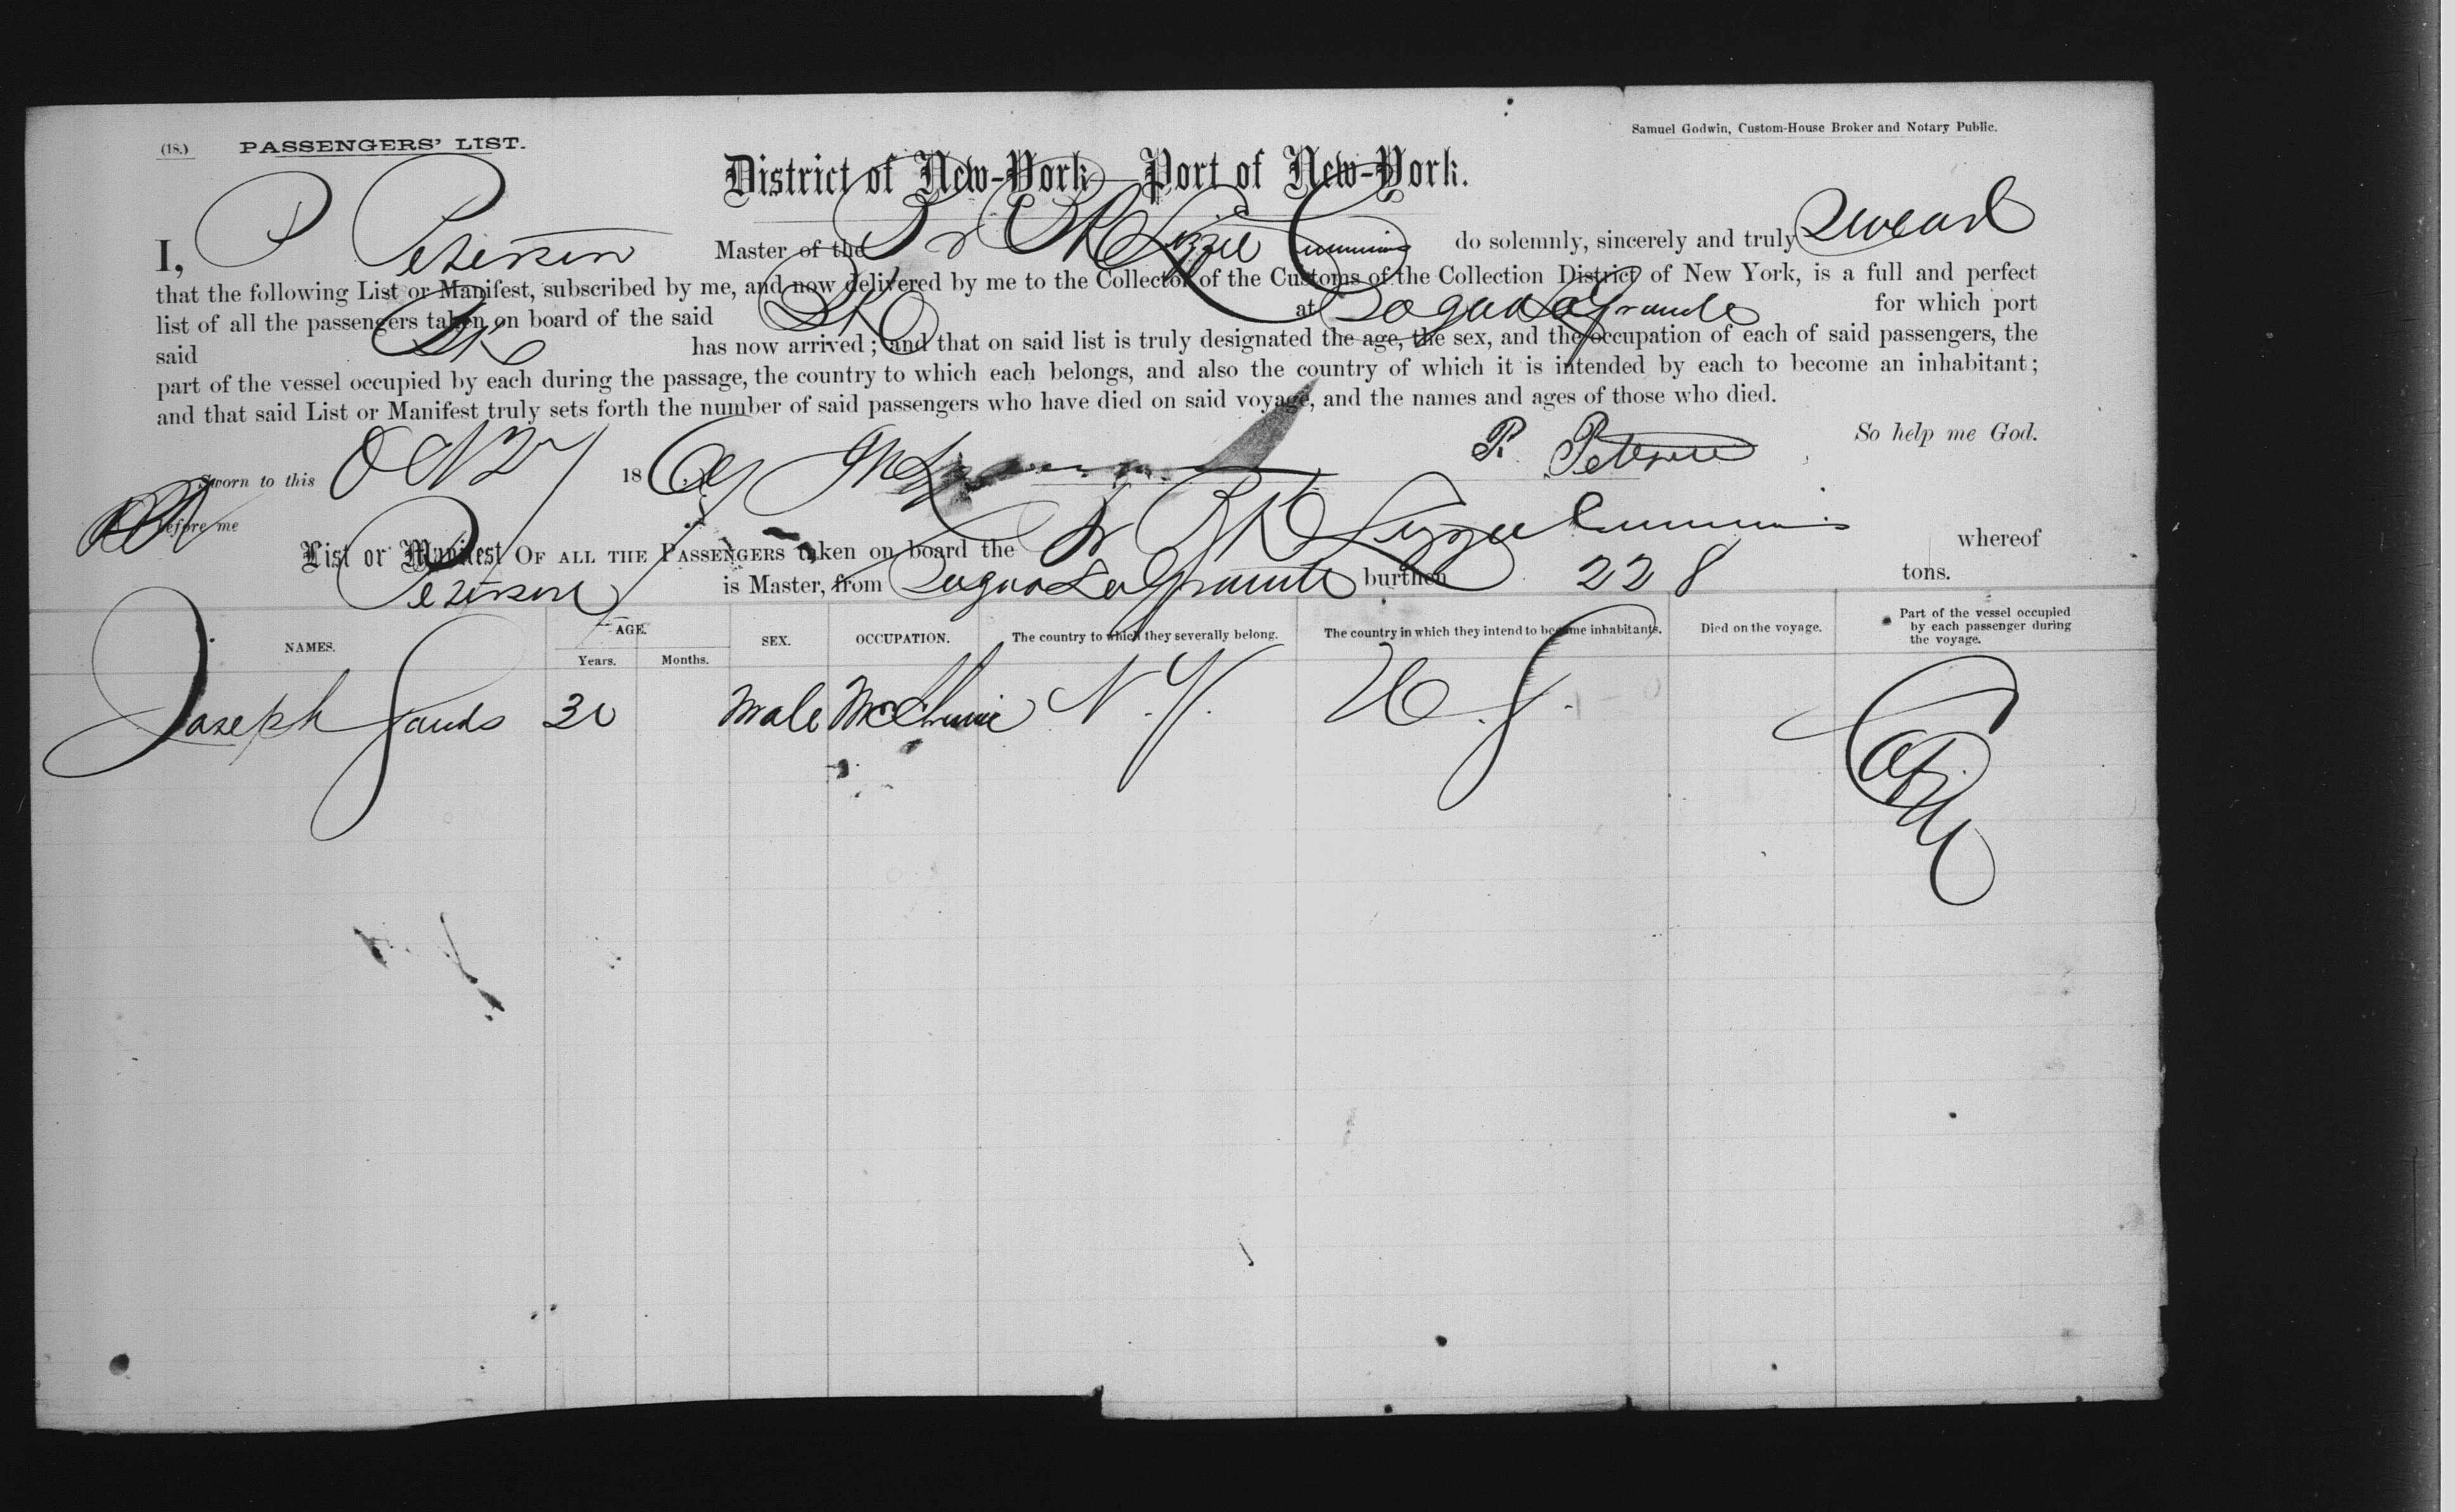 (18.) PASSENGERS' LIST.
Samuel Godwin, Custom-House Broker and Notary Public.
District of New-York—Port of New-York.
I, P Peterson Master of the Br Bk Lizzie Cummins do solemnly, sincerely and truly Swear
that the following List or Manifest, subscribed by me, and now delivered by me to the Collector of the Customs of the Collection District of New York, is a full and perfect
list of all the passengers taken on board of the said Bk at Sagua La Grande for which port
said Bk has now arrived; and that on said list is truly designated the age, the sex, and the occupation of each of said passengers, the
part of the vessel occupied by each during the passage, the country to which each belongs, and also the country of which it is intended by each to become an inhabitant;
and that said List or Manifest truly sets forth the number of said passengers who have died on said voyage, and the names and ages of those who died.
So help me God.
P. Peterson
Sworn to this Oct 27 186
Before me
List or Manifest OF ALL THE PASSENGERS taken on board the Br Bk Lizzie Cummins whereof
Peterson is Master, from Sagua La Grande burthen 228 tons.
NAMES. AGE. Years. Months. SEX. OCCUPATION. The country to which they severally belong. The country in which they intend to become inhabitants. Died on the voyage. Part of the vessel occupied by each passenger during the voyage.
Joseph Sands 30 Male N.Y. U.S. Cabin